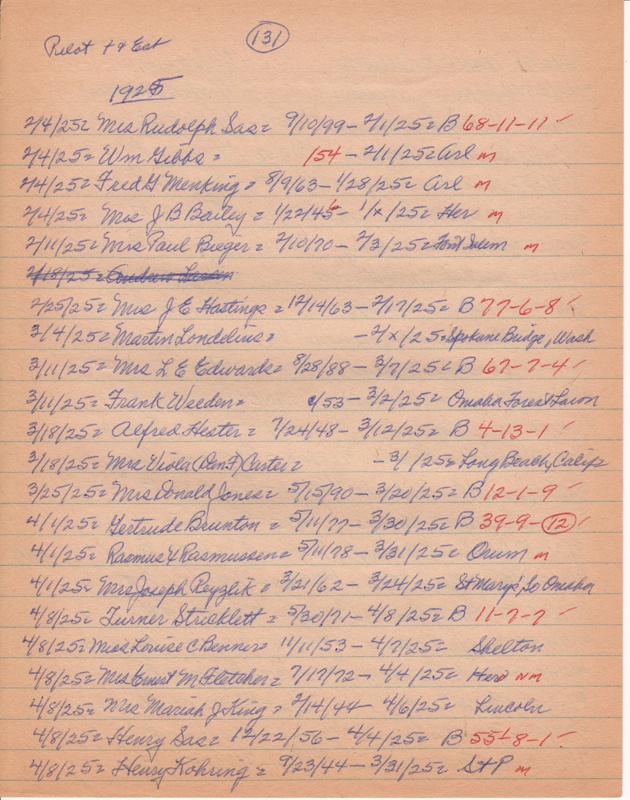 Pilot + & Ent (131)
1925
2/4/25= Mrs Rudolph Sas= 9/10/99 - 2/1/25= B 68-11-11 ✓
2/4/25= Wm Gibbs= 154 - 2/1/25= Arl m
2/4/25= Fred G Menking= 8/9/63 - 1/28/25= Arl m
2/4/25= Mose J B Bailey= 1/22/45 - 1/x/25= Her m
2/11/25= Mrs Paul Bieger= 2/10/70 - 2/3/25= Font Salem m
2/18/25= Andrew Larsen
2/25/25= Mrs J E Hastings= 12/14/63 - 2/17/25= B 77-6-8 ✓
3/4/25= Martin Londelius= - 2/x/25= Spokane Bridge, Wash
3/11/25= Mrs L E Edwards= 8/28/88 - 3/7/25= B 67-7-4 ✓
3/11/25= Frank Weeden= c/53 - 3/2/25= Omaha Forest Lawn
3/18/25= Alfred Hester= 7/24/48 - 3/12/25= B 4-13-1 ✓
3/18/25= Mrs Viola (Den F) Carter= - 3/ /25= Long Beach, Calif
3/25/25= Mrs Donald Jones= 5/15/90 - 3/20/25= B 12-1-9 ✓
4/1/25= Gertrude Brunton= 5/11/77 - 3/30/25= B 39-9-(12) ✓
4/1/25= Rasmus Y Rasmussen= 5/11/78 - 3/31/25= Orum m
4/1/25= Mrs Joseph Reyzlik= 3/21/62 - 3/24/25= St Mary's So Omaha
4/8/25= Turner Stricklett= 5/30/71 - 4/8/25= B 11-7-7 ✓
4/8/25= Miss Louise C Benner= 11/11/53 - 4/7/25= Shelton
4/8/25= Mrs Ernest M Fletcher= 7/17/72 - 4/4/25= Her nm
4/8/25= Mrs Mariah J King= 2/14/44 - 4/6/25= Lincoln
4/8/25= Henry Sas= 12/22/56 - 4/4/25= B 55-8-1 ✓
4/8/25= Henry Kohring= 9/23/44 - 3/31/25= St P m